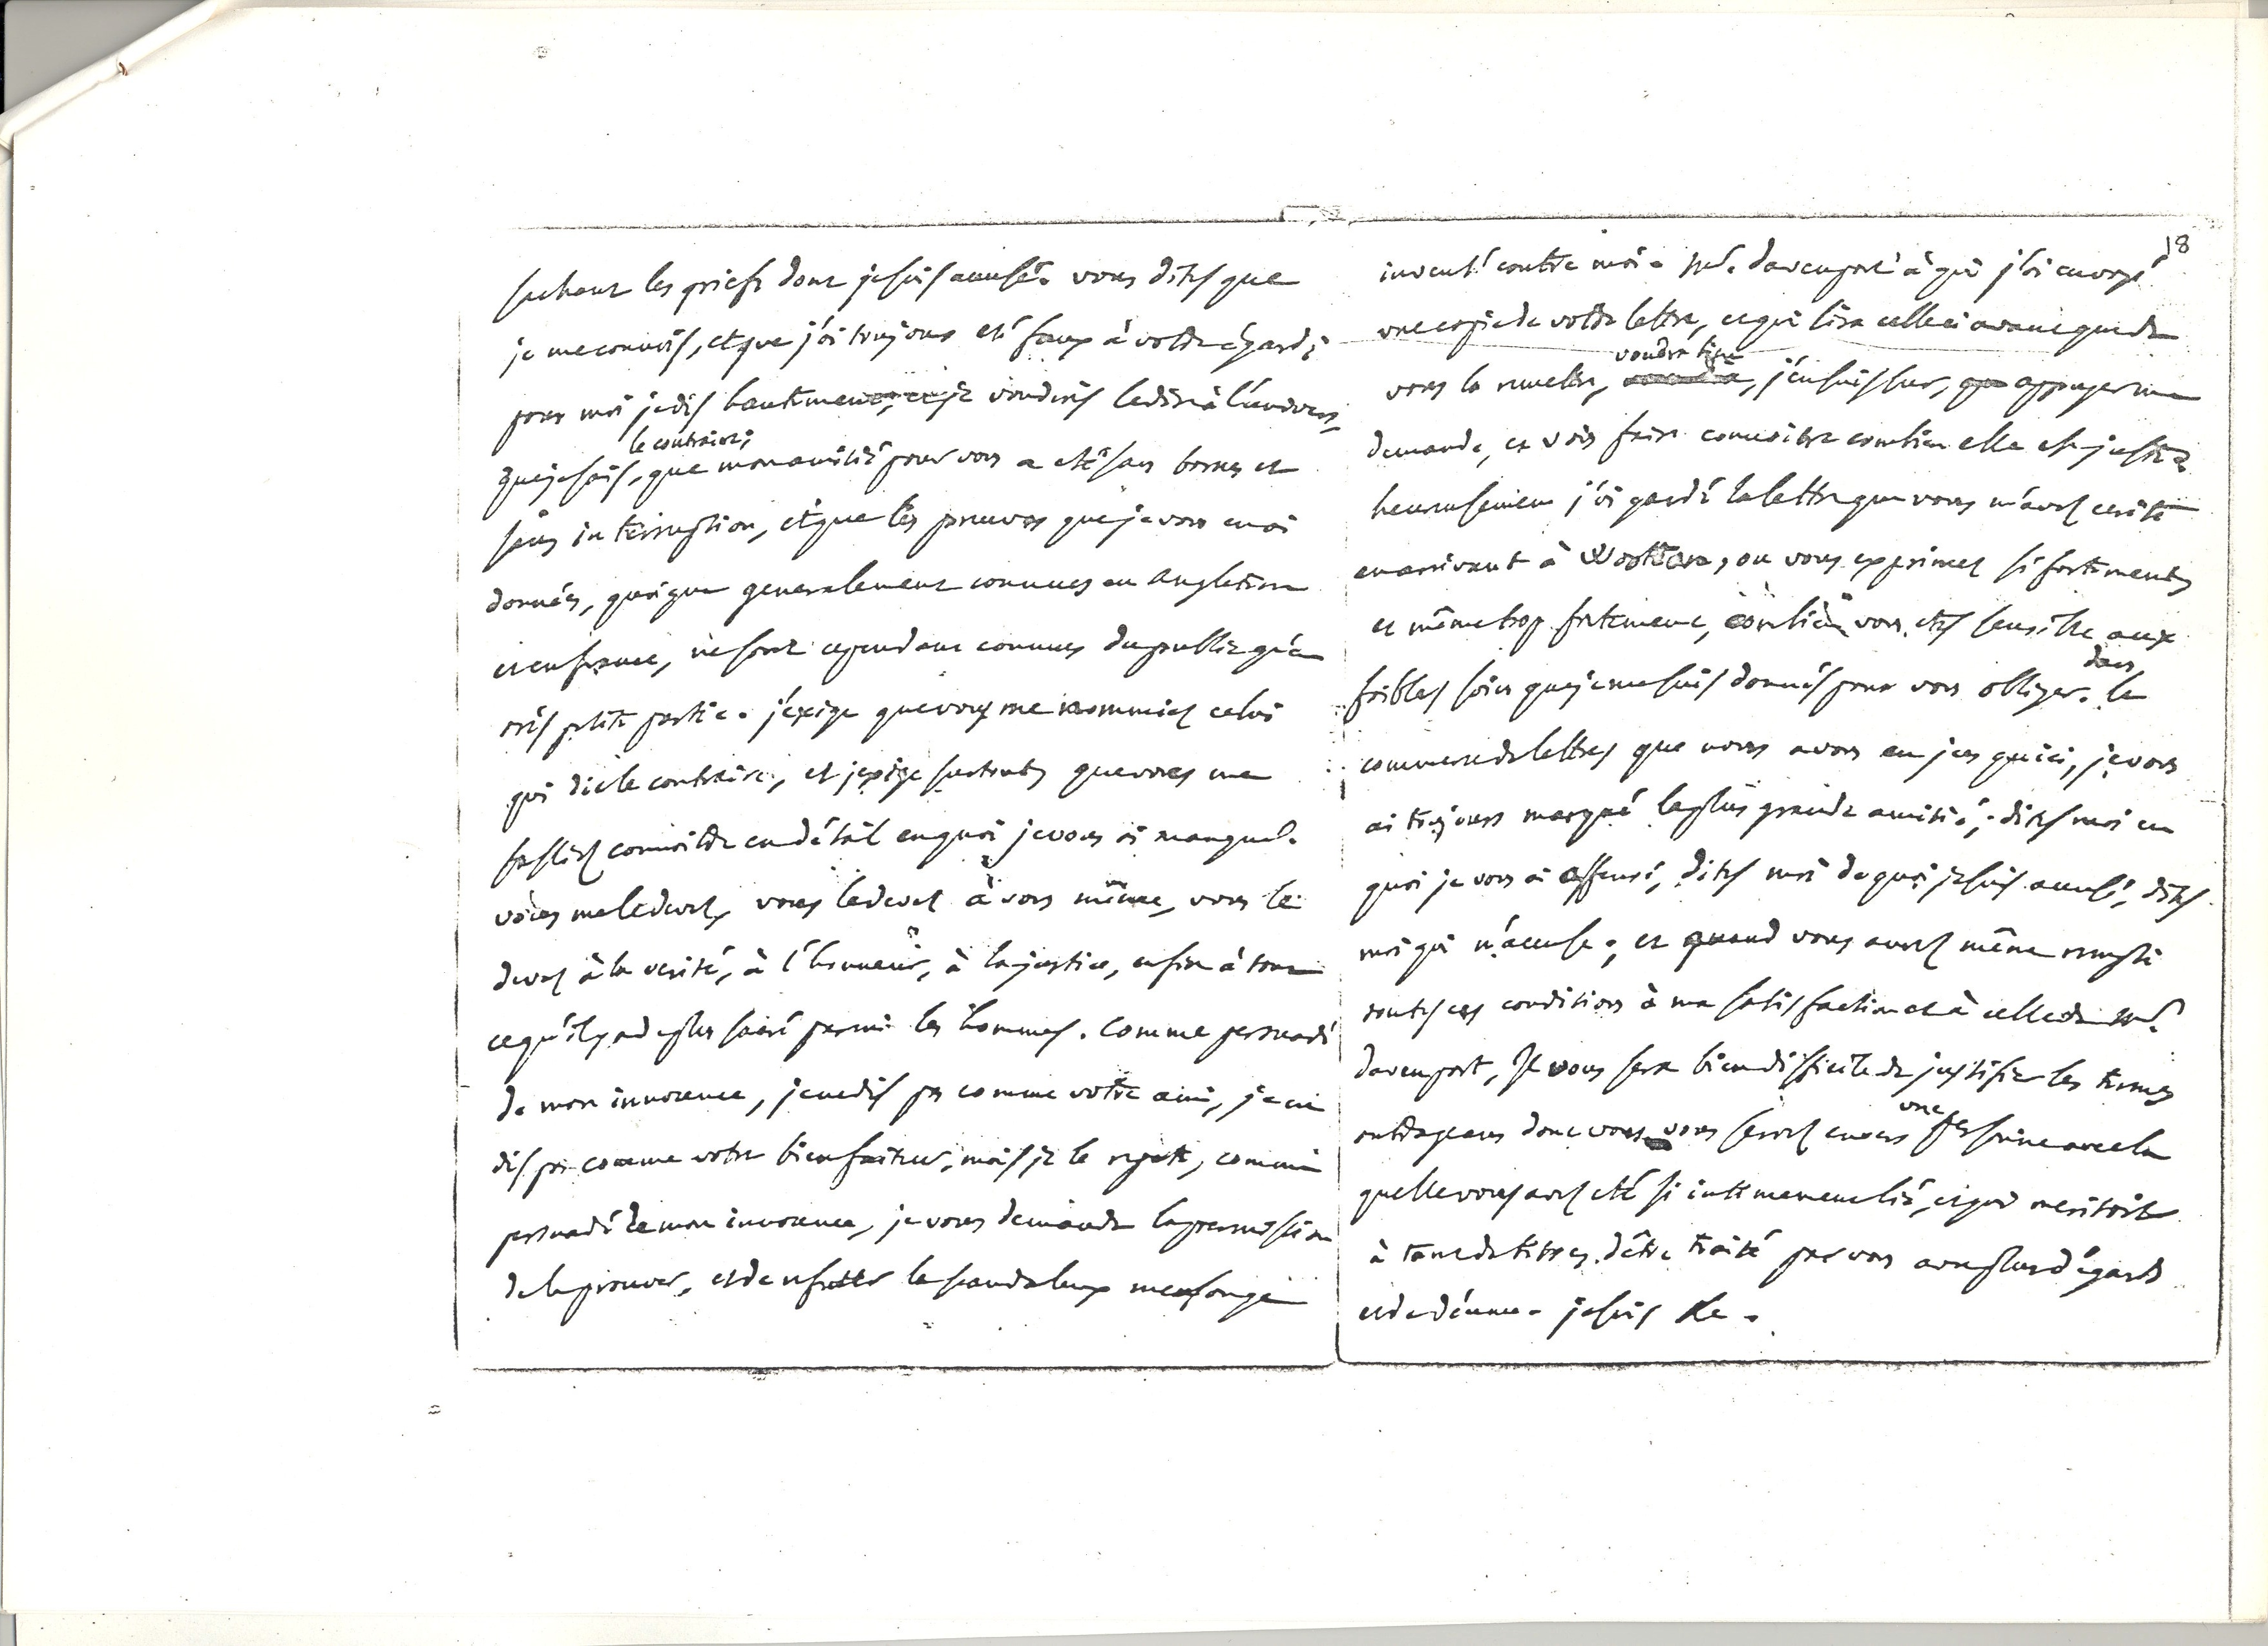 sachant les griefs dont je suis accusé. vous dites que
je me connois, et que j'ai toujours eté faux à votre égard;
pour moi je dis hautement, et je voudrois le dire à l'univers,
le contraire;
que je sais, que mon amitié pour vous a eté sans bornes et
sans interruption, et que les preuves que je vous en ai
données, quoique generalement connues en angleterre
et en france, ne sont cependant connues du public qu'en
très petite partie. j'exige que vous me nommiez celui
qui dit le contraire, et j'exige surtout, que vous me
fassiez connoitre en détail en quoi je vous ai manqué.
vous me le devez, vous le devez à vous même, vous le
devez à la verité, à l'honneur, à la justice, enfin à tout
ce qu'il y a de plus sacré parmi les hommes. Comme persuadé
de mon innocence, je ne dis pas comme votre ami, je ne
dis pas comme votre bienfaiteur, mais je le repete, comme
persuadé de mon innocence, je vous demande la permission
de la prouver, et de refuter le scandaleux mensonge
18
inventé contre moi. Mr. davenport à qui j'ai envoyé
une copie de votre lettre, et qui lira celle ci avant que de
voudra bien
vous la remettre, j'en suis sur, appuyer ma
demande, et vous faire connoitre combien elle est juste.
heureusement j'ai gardé la lettre que vous m'avez ecrite
en arrivant à Wootton, ou vous exprimez si fortement,
et même trop fortement, combien vous etes sensible aux
dans
foibles soins que je me suis donnés pour vous obliger. le
commerce de lettres que nous avons eu jusqu'ici, je vous
ai toujours marqué la plus grande amitié; dites moi en
quoi je vous ai offensé, dites moi de quoi je suis accusé, dites
moi qui m'accuse; et quand vous aurez même rempli
toutes ces conditions à ma satisfaction et à celle de Mr.
davenport, Il vous sera bien difficile de justifier les termes
une
outrageans dont vous vous servez envers personne avec la
quelle vous avez eté si intimement lié, et qui meritoit
à tant de titres, d'être traité par vous avec plus d'égards
et de décence. je suis &c.